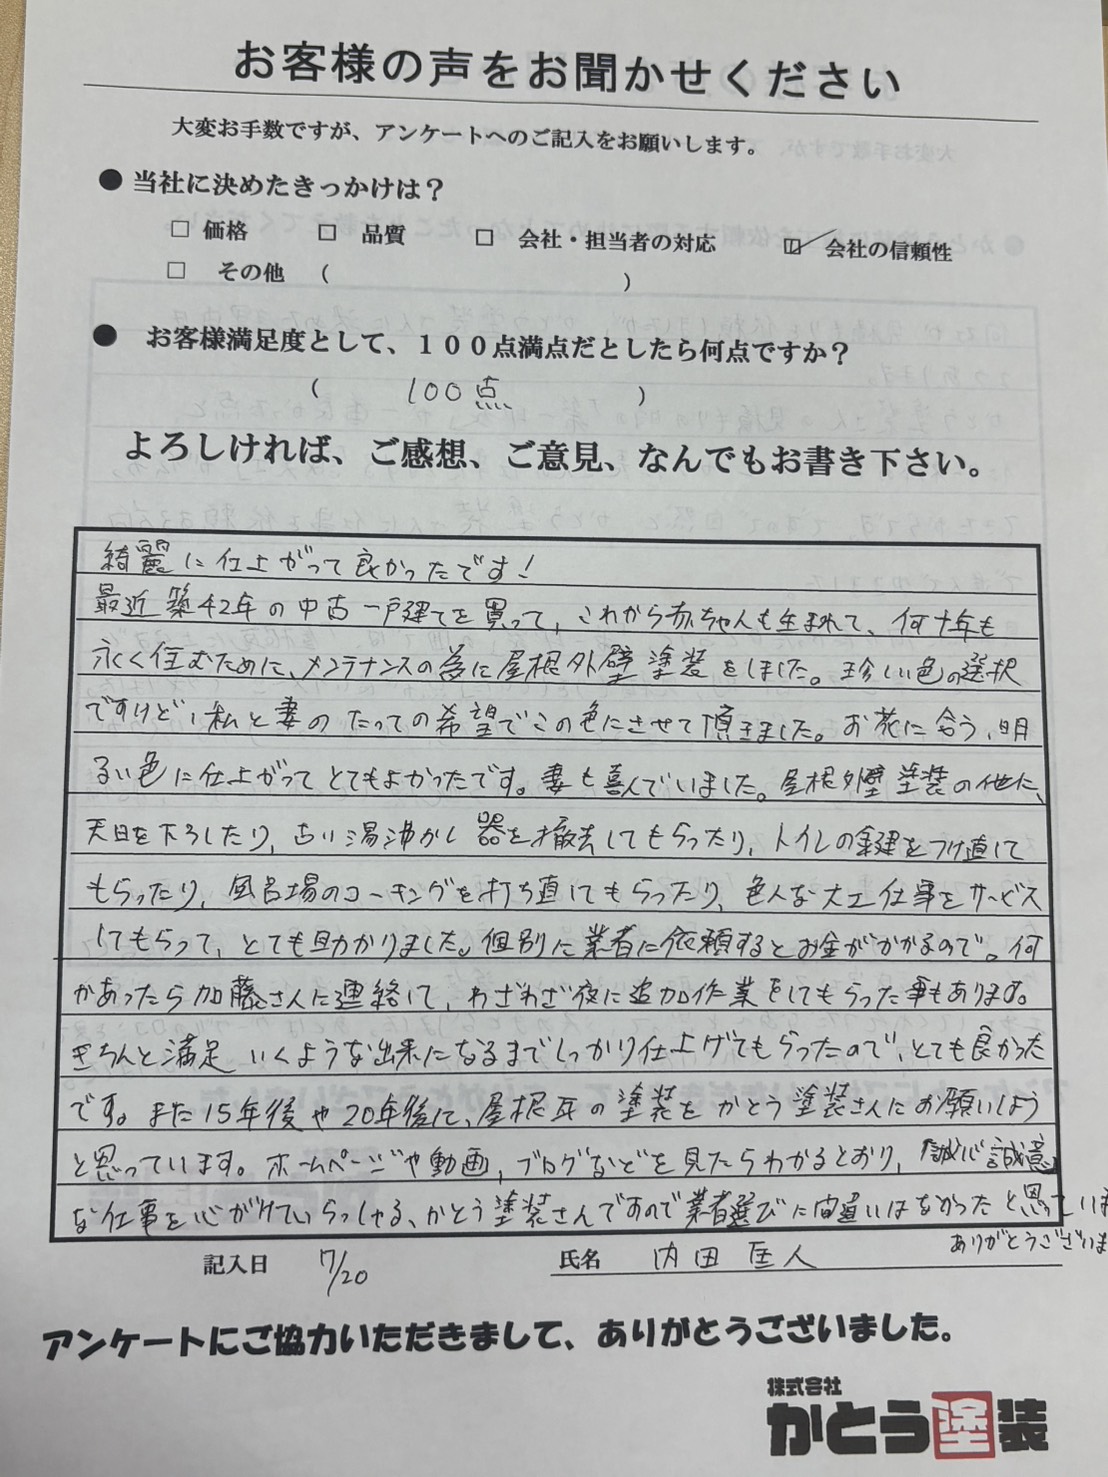 お客様の声をお聞かせください
大変お手数ですが、アンケートへのご記入をお願いします。
● 当社に決めたきっかけは？
□ 価格 □ 品質 □ 会社・担当者の対応 ☑ 会社の信頼性
□ その他 （ ）
● お客様満足度として、１００点満点だとしたら何点ですか？
（ 100点 ）
よろしければ、ご感想、ご意見、なんでもお書き下さい。
綺麗に仕上がって良かったです！
最近築42年の中古一戸建てを買って、これから赤ちゃんも生まれて、何十年も
永く住むために、メンテナンスの為に屋根外壁塗装をしました。珍しい色の選択
ですけど、私と妻のたっての希望でこの色にさせて頂きました。お花に合う、明
るい色に仕上がってとてもよかったです。妻も喜んでいました。屋根外壁塗装の他に、
天日を下ろしたり、古い湯沸かし器を撤去してもらったり、トイレの鍵をつけ直して
もらったり、風呂場のコーキングを打ち直してもらったり、色んな大工仕事をサービス
してもらって、とても助かりました。個別に業者に依頼するとお金がかかるので。何
かあったら加藤さんに連絡して、わざわざ夜に追加作業をしてもらった事もあります。
きちんと満足いくような出来になるまでしっかり仕上げてもらったので、とても良かった
です。また15年後や20年後に、屋根瓦の塗装をかとう塗装さんにお願いしよう
と思っています。ホームページや動画、ブログなどを見たらわかるとおり、「誠心誠意」
な仕事を心がけていらっしゃる、かとう塗装さんですので業者選びに間違いはなかったと思っていま
ありがとうございま
記入日 7/20 氏名 内田 匡人
アンケートにご協力いただきまして、ありがとうございました。
株式会社
かとう塗装